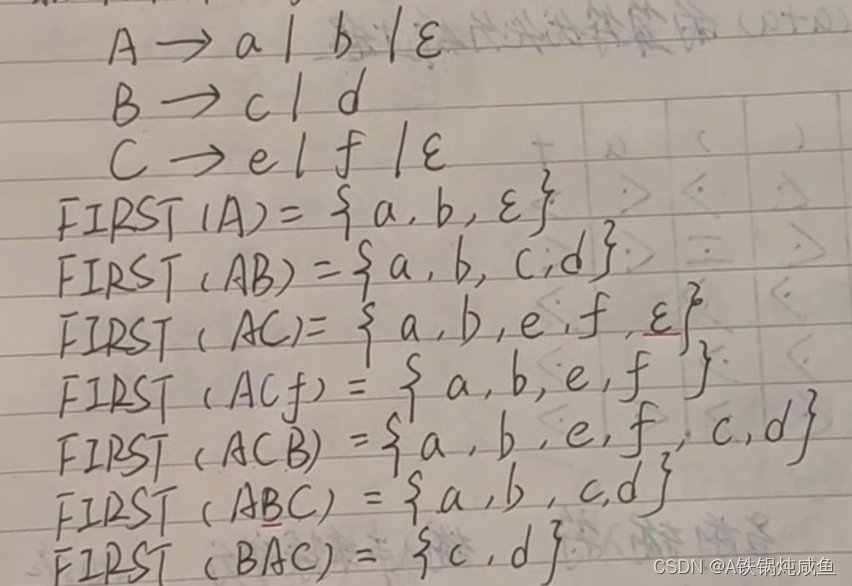 A → a | b | ε
B → c | d
C → e | f | ε
FIRST (A) = { a, b, ε }
FIRST (AB) = { a, b, c, d }
FIRST (AC) = { a, b, e, f, ε }
FIRST (ACf) = { a, b, e, f }
FIRST (ACB) = { a, b, e, f, c, d }
FIRST (ABC) = { a, b, c, d }
FIRST (BAC) = { c, d }
CSDN @A铁锅炖咸鱼